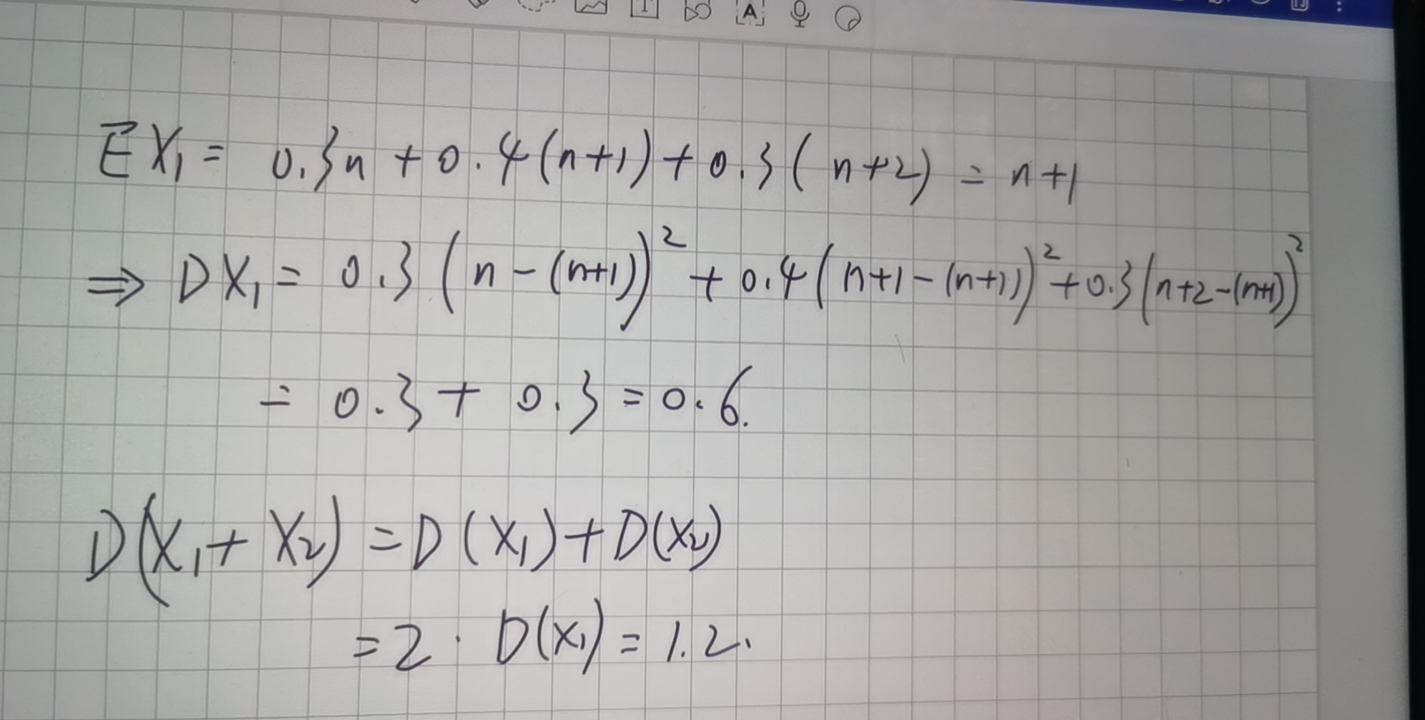 EX₁ = 0.3n + 0.4(n+1) + 0.3(n+2) = n+1
⇒ DX₁ = 0.3(n-(n+1))² + 0.4(n+1-(n+1))² + 0.3(n+2-(n+1))²
= 0.3 + 0.3 = 0.6.
D(X₁+X₂) = D(X₁)+D(X₂)
= 2 · D(X₁) = 1.2.